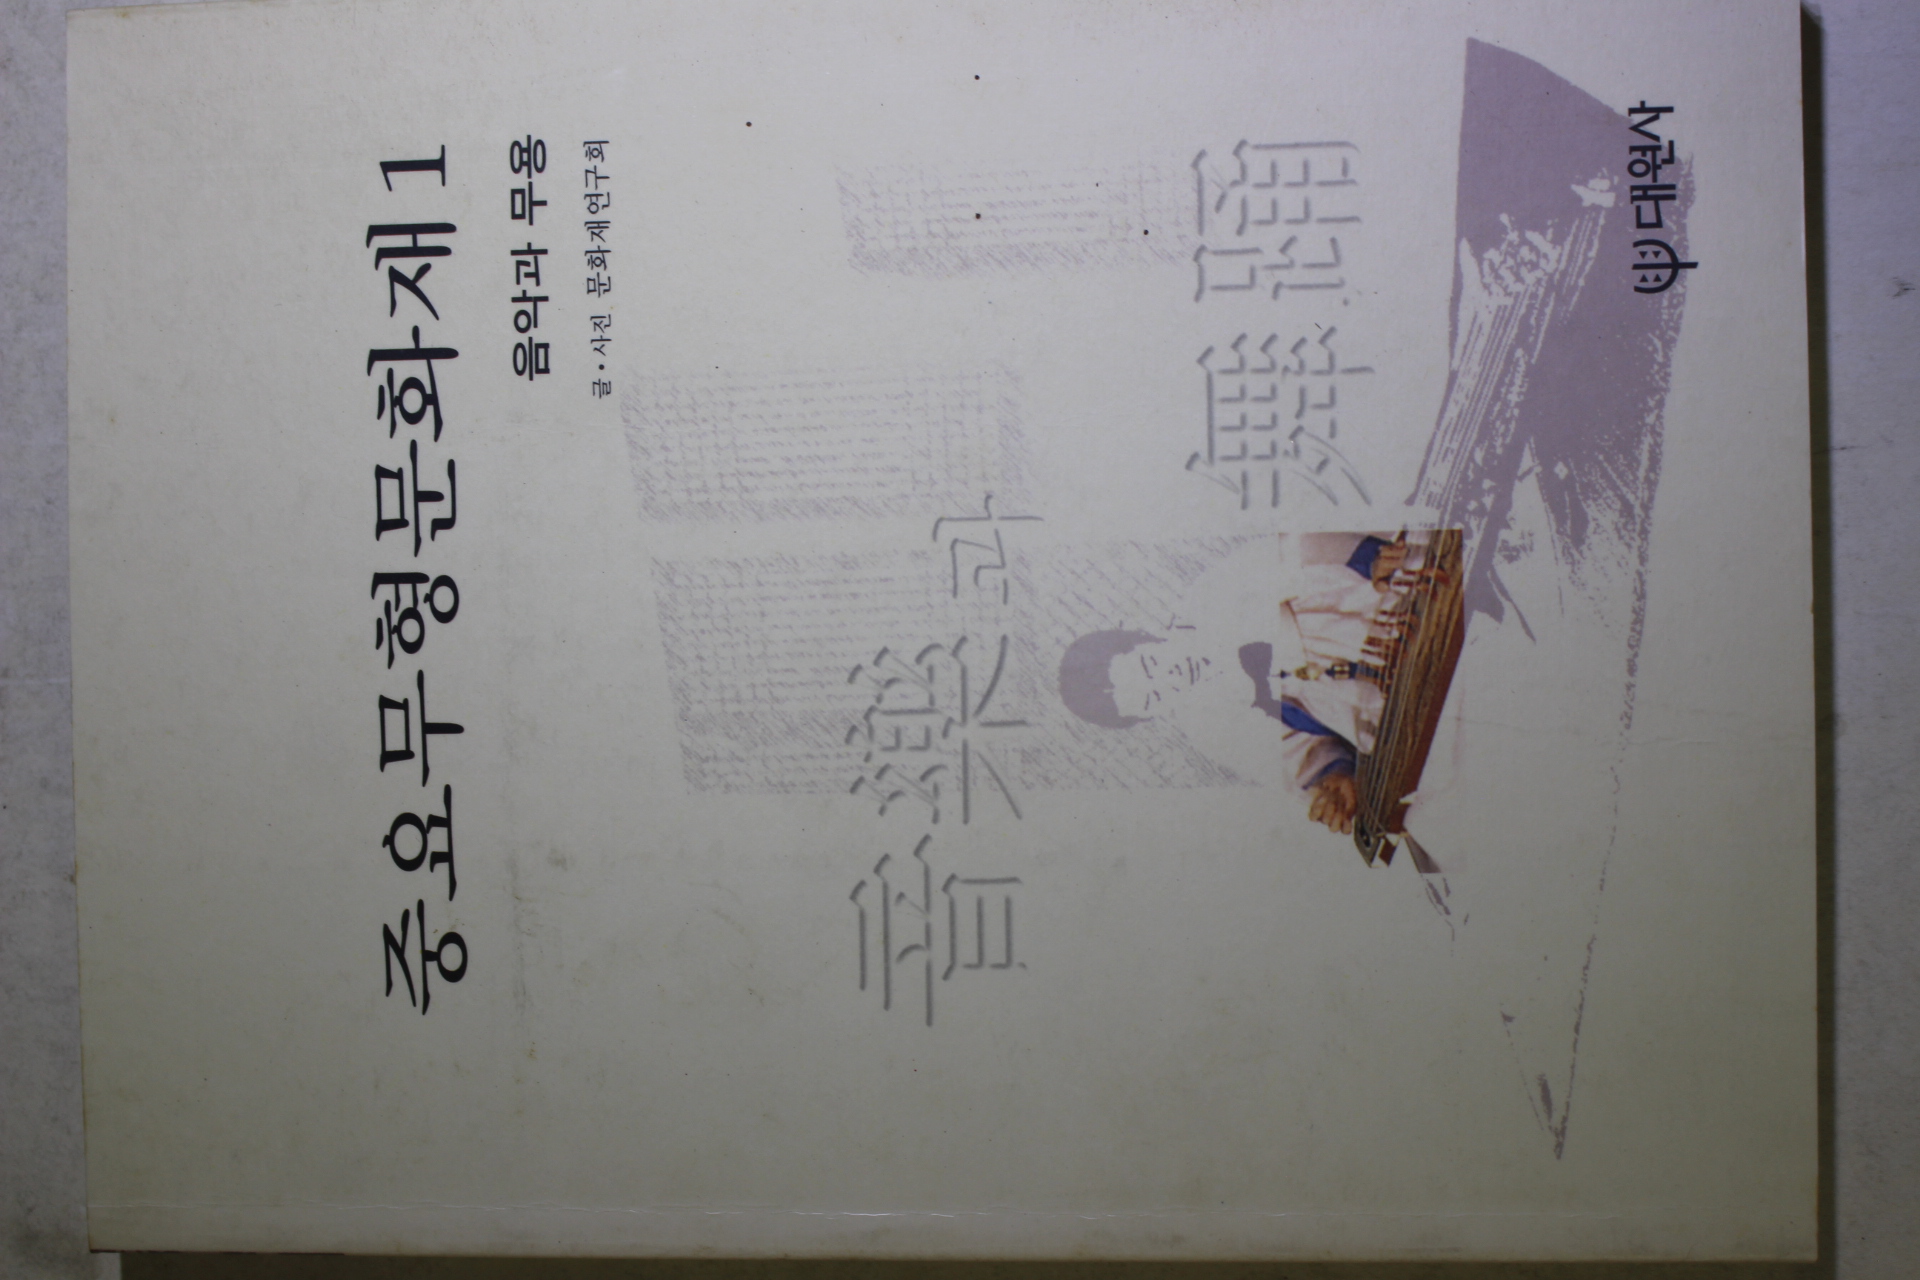 중요무형문화재 1
음악과 무용
글·사진 문화재연구회
音樂과
舞踊
대원사